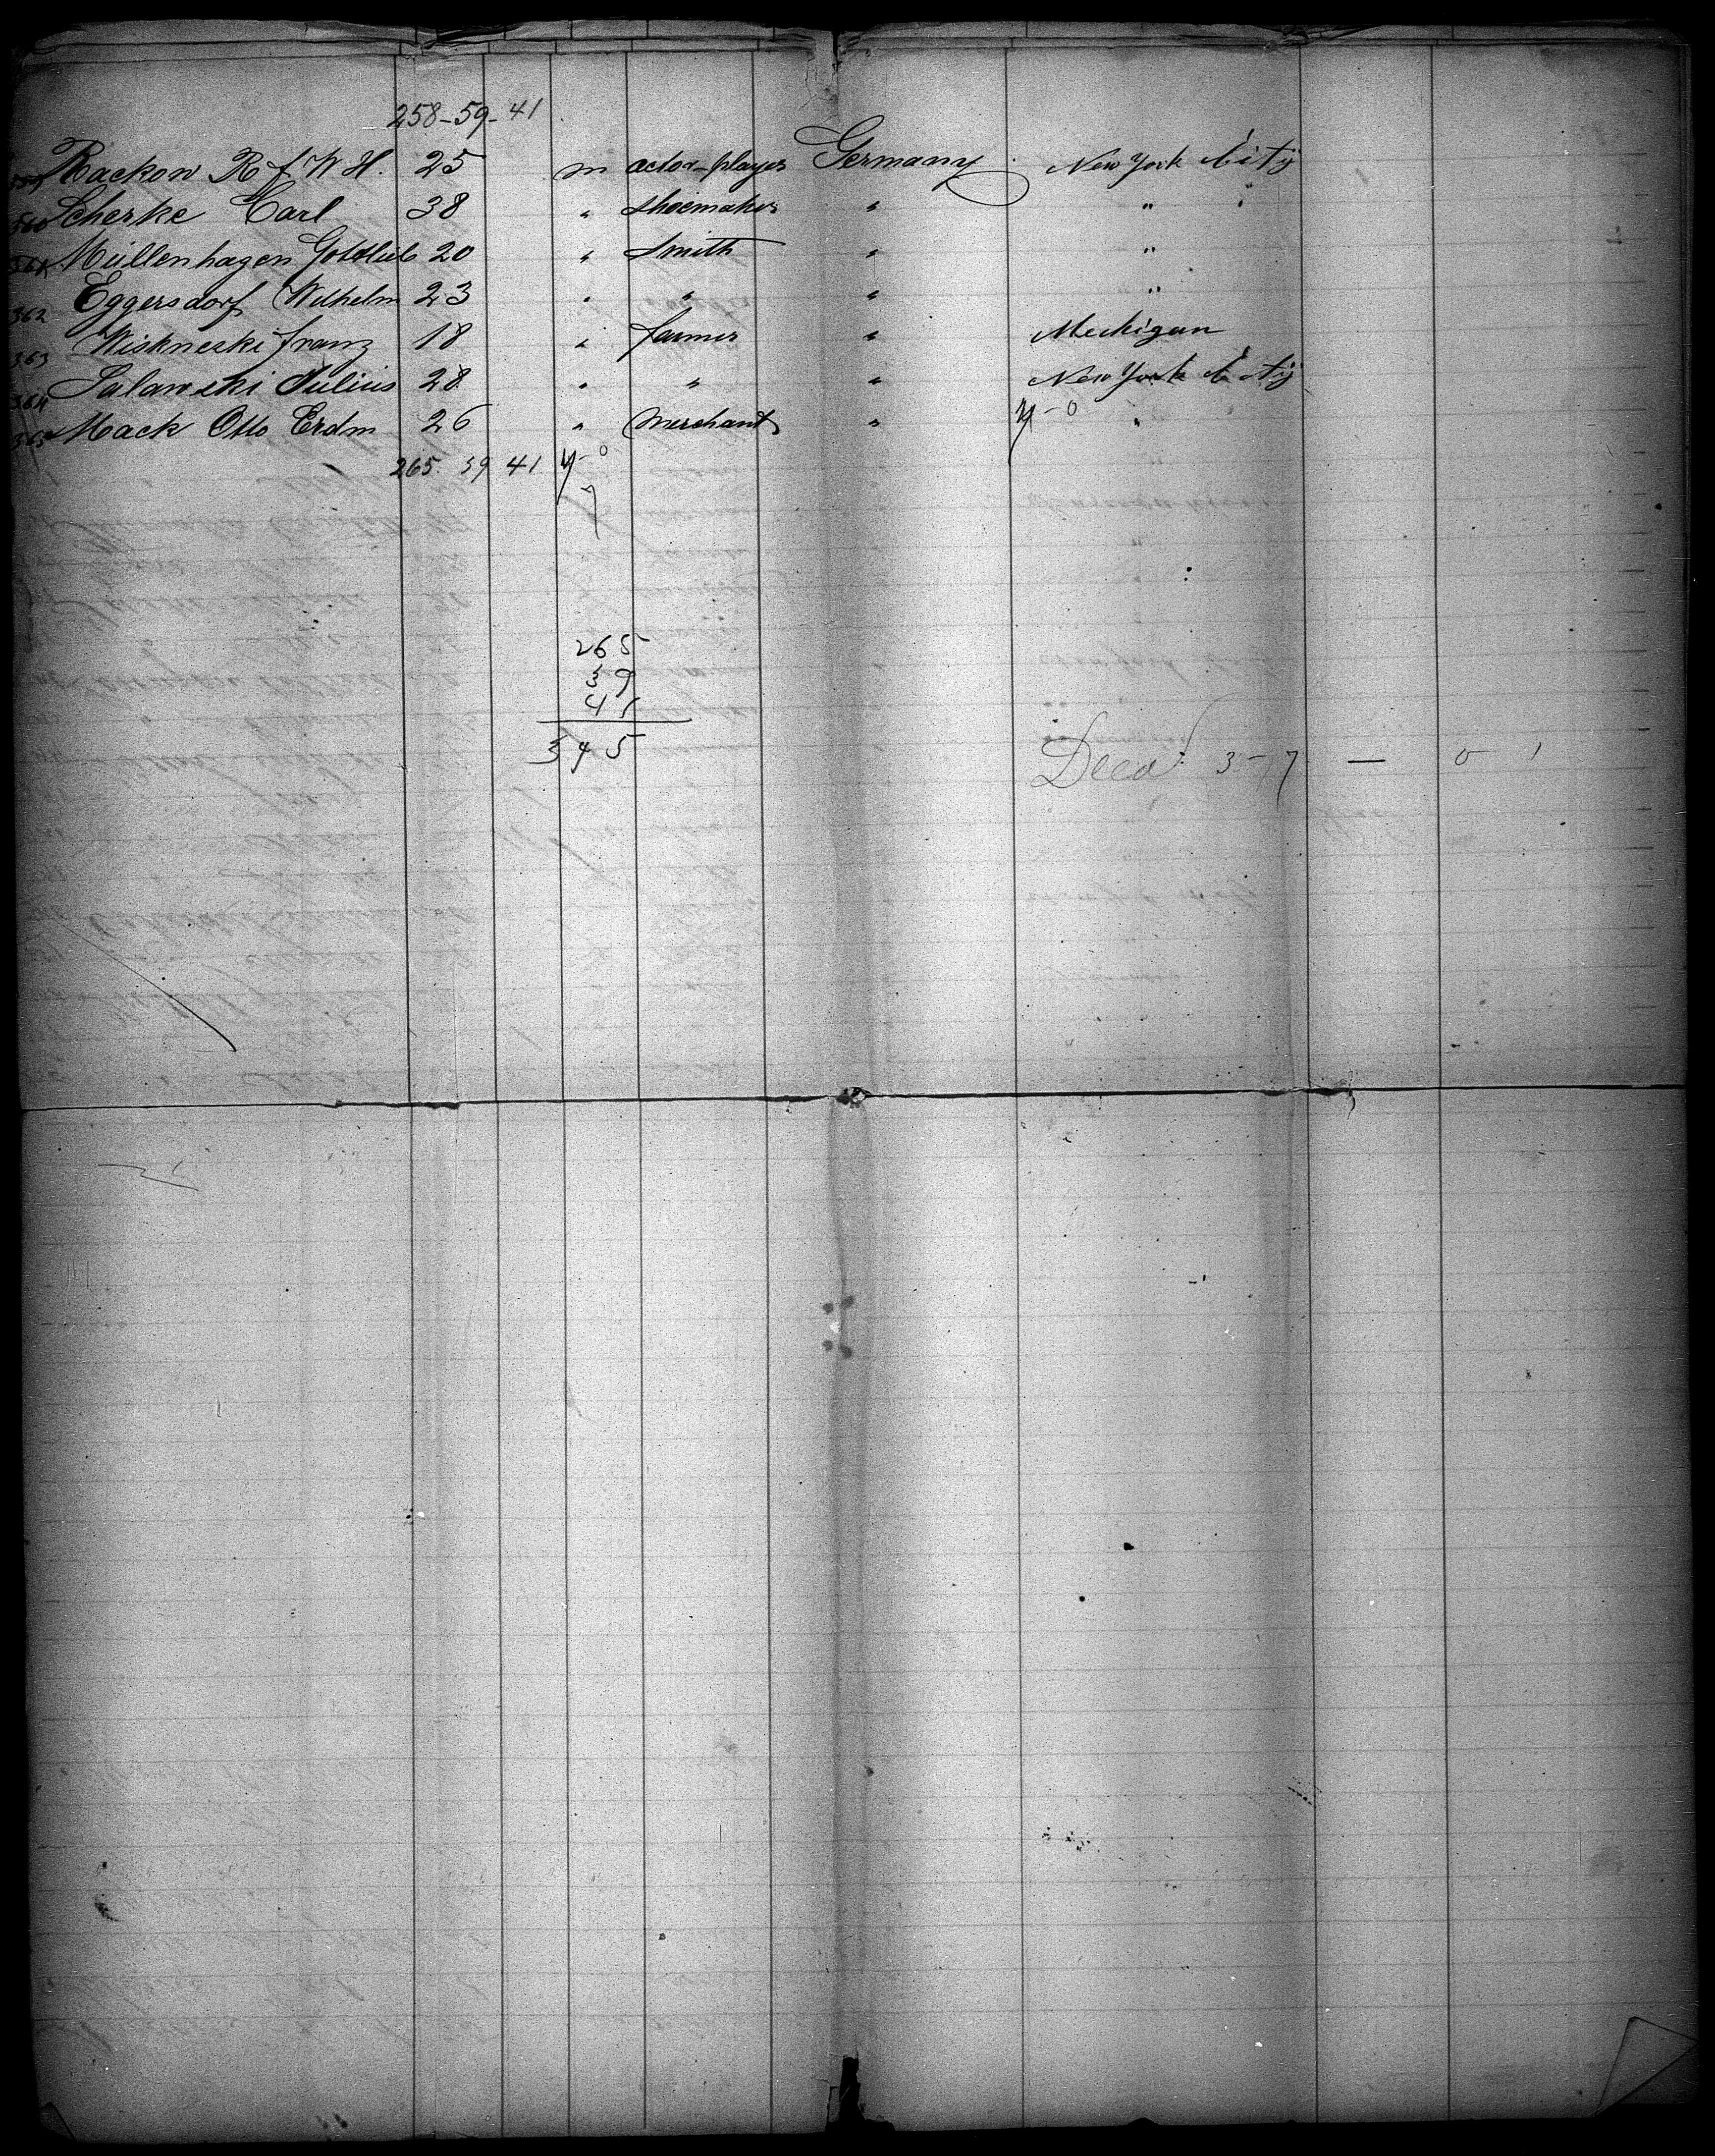 258-59-41
359 Rackow R f W H. 25 m actor-player Germany New York City
360 Scherke Carl 38 " shoemaker " "
361 Müllenhagen Gottlieb 20 " Smith " "
362 Eggersdorf Wilhelm 23 " " " "
363 Wiskneski franz 18 " farmer " Mechigan
364 Salawski Julius 28 " " " New York City
365 Mack Otto Erdm 26 " Merchant " "
265. 39 41
265
39
41
345
Decd: 3-77 — 0 1